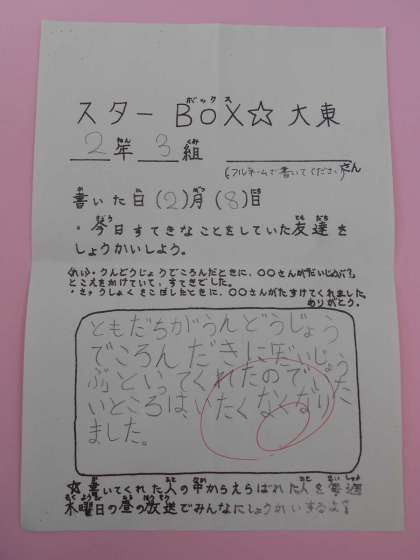 スターBOX☆大東
2年 3組
(フルネームで書いてください)さん
書いた日(2)月(8)日
・今日すてきなことをしていた友達を
しょうかいしよう。
(れい)・うんどうじょうでころんだときに、〇〇さんが「だいじょうぶ?」
とこえをかけていて、すてきでした。
・きゅうしょくをこぼしたときに、〇〇さんがたすけてくれました。
ありがとう。
ともだちがうんどうじょう
でころんだきにだいじょう
ぶといってくれたのでいた
いところはいたくなくなり
ました。
☆書いてくれた人の中からえらばれた人を毎週
木曜日の昼の放送でみんなにしょうかいするよ!